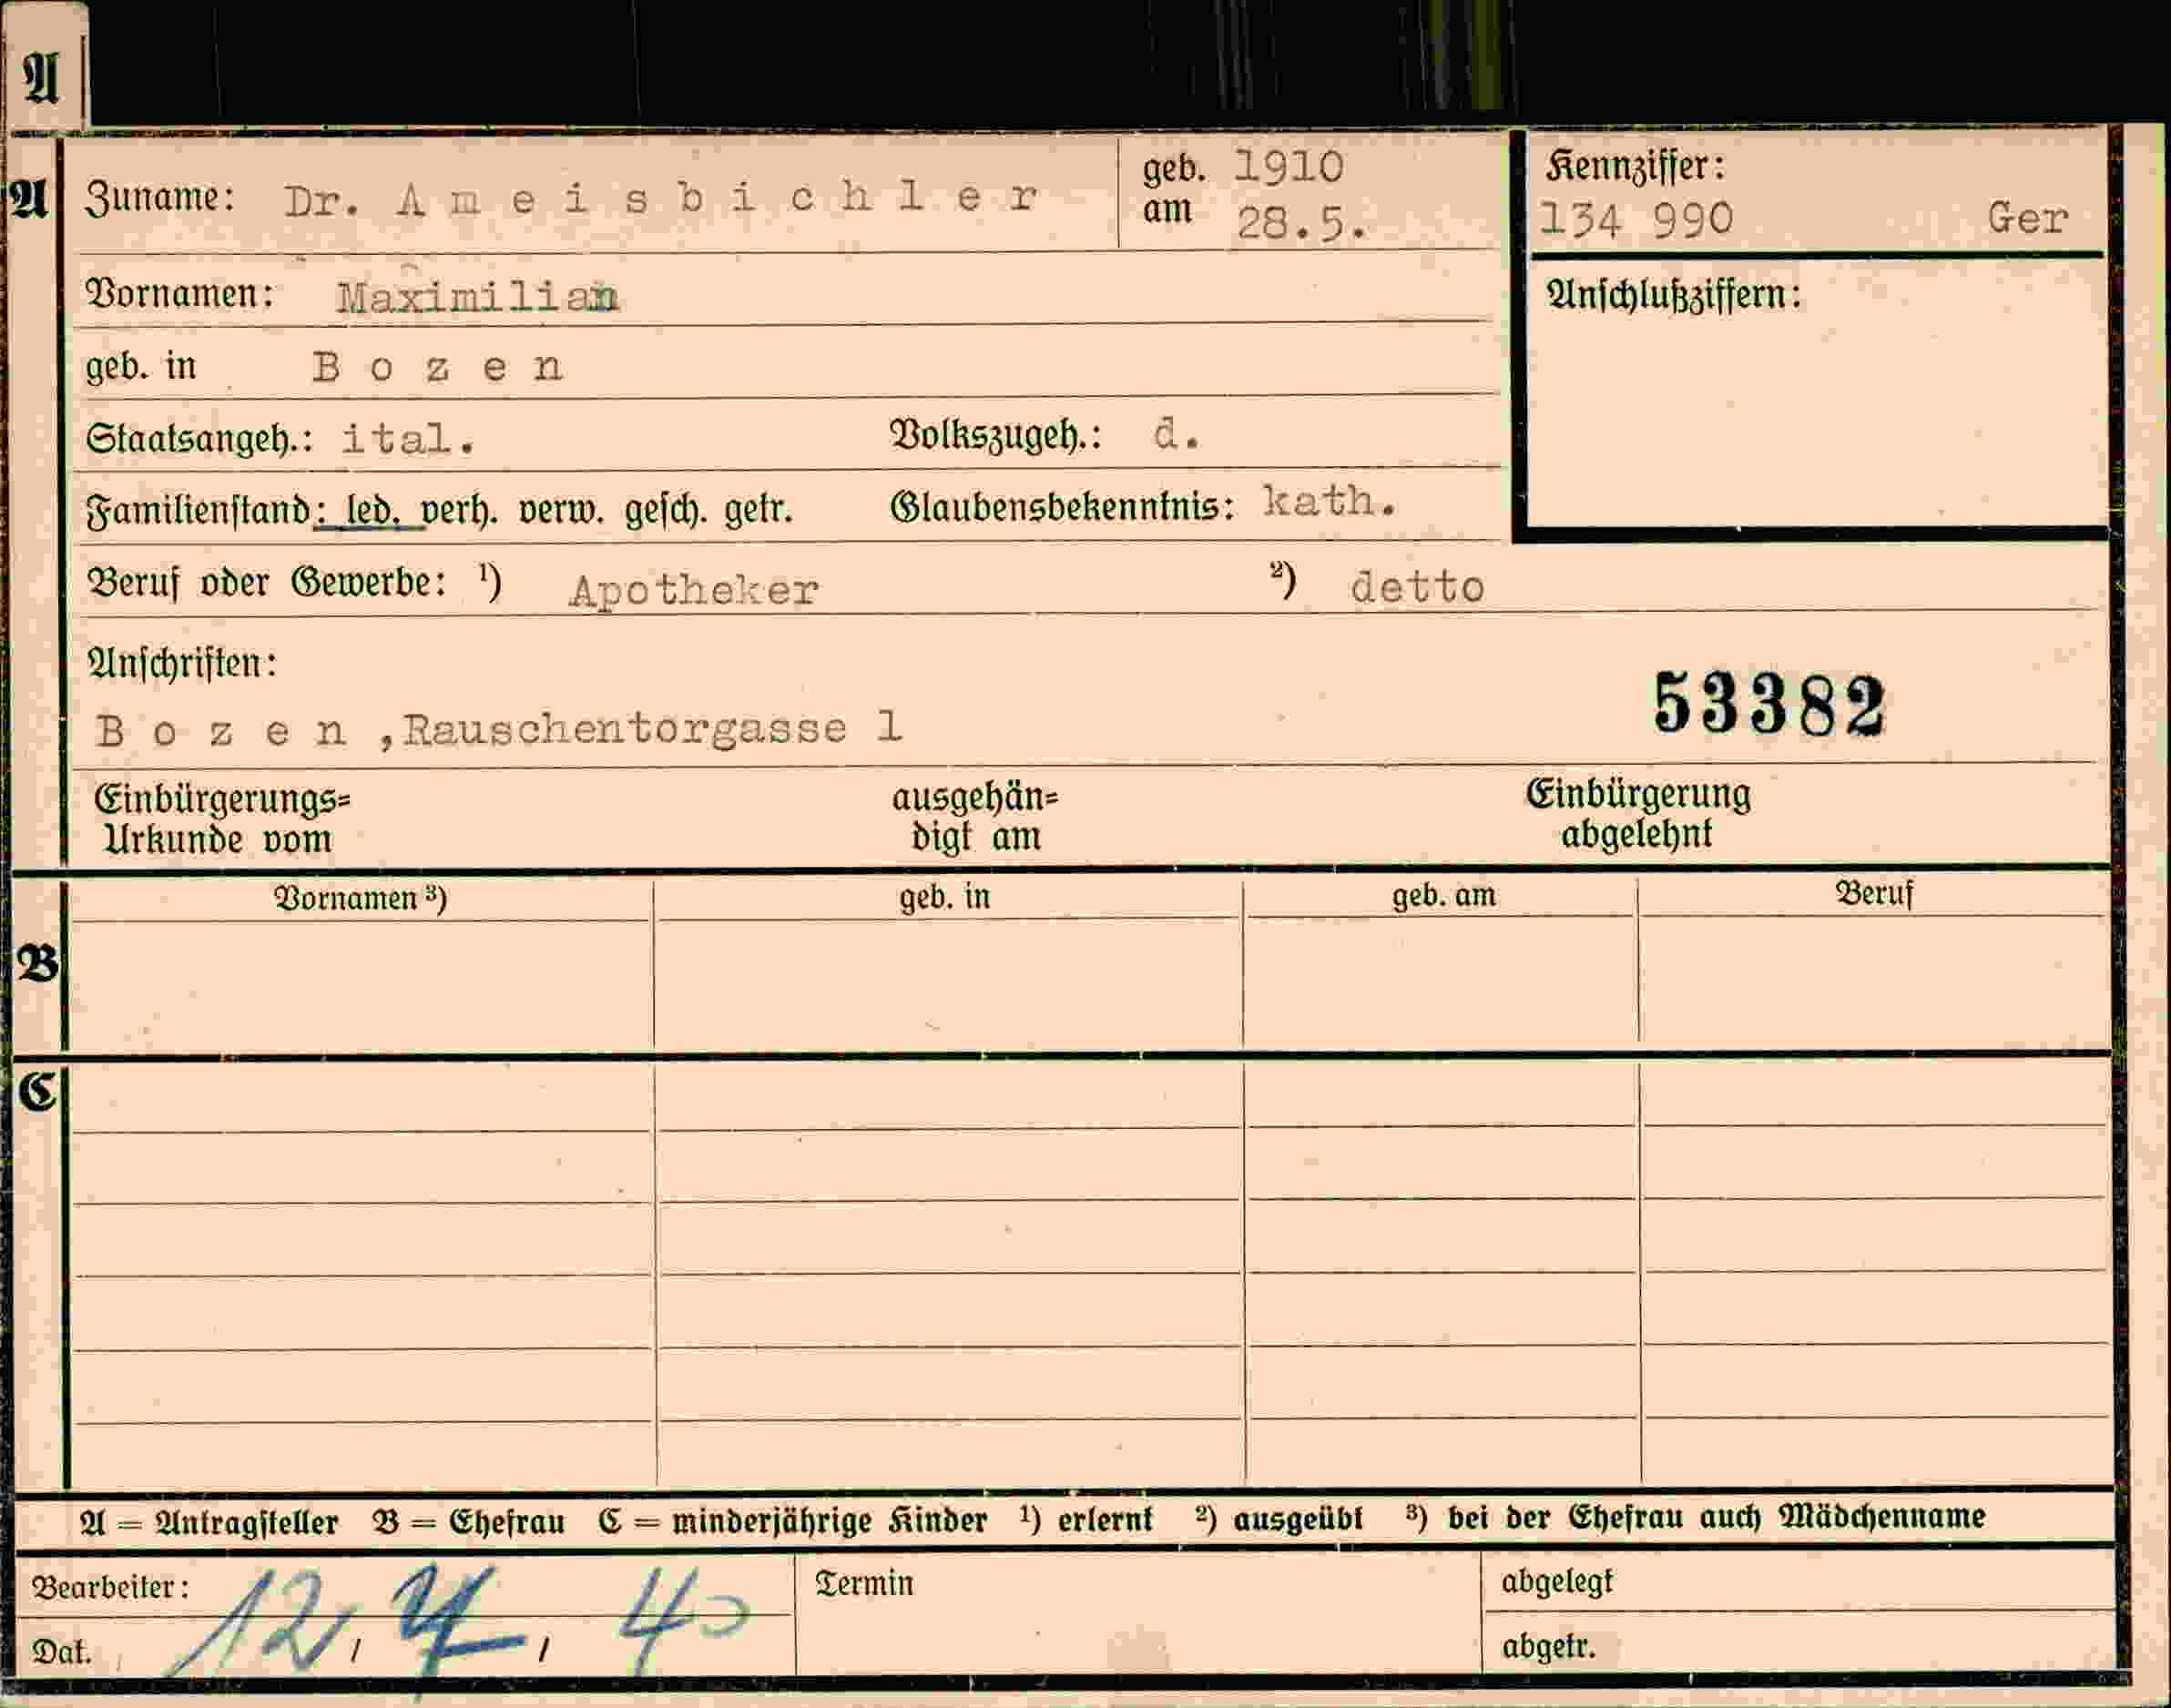 A
A
Zuname: Dr. A m e i s b i c h l e r
geb. 1910
am 28.5.
Kennziffer:
134 990 Ger
Vornamen: Maximilian
Anschlußziffern:
geb. in B o z e n
Staatsangeh.: ital. Volkszugeh.: d.
Familienstand: led. verh. verw. gesch. getr. Glaubensbekenntnis: kath.
Beruf oder Gewerbe: ¹) Apotheker ²) detto
Anschriften:
53382
B o z e n ,Rauschentorgasse 1
Einbürgerungs= ausgehän= Einbürgerung
Urkunde vom digt am abgelehnt
Vornamen ³) geb. in geb. am Beruf
B
C
A = Antragsteller B = Ehefrau C = minderjährige Kinder ¹) erlernt ²) ausgeübt ³) bei der Ehefrau auch Mädchenname
Bearbeiter: Termin abgelegt
Dat. 12, 4, 40 abgetr.